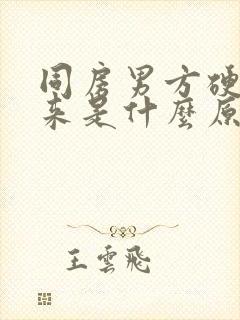 同房男方硬
来是什麼原
王雲飛